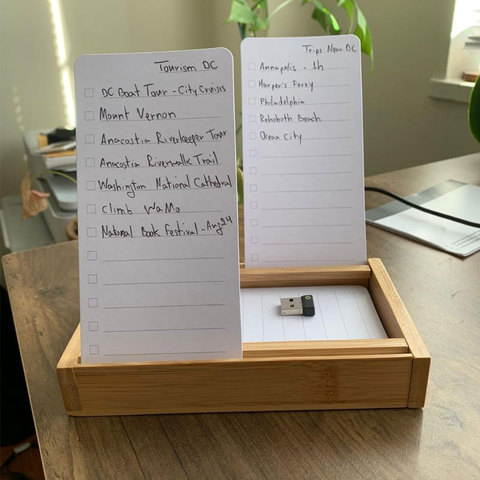 Tourism DC
DC Boat Tour - City Cruises
Mount Vernon
Anacostia Riverkeeper Tour
Anacostia Riverwalk Trail
Washington National Cathedral
Climb WaMo
National Book Festival - Aug 24
Trips Near DC
Annapolis - 1h
Harper's Ferry
Philadelphia
Rehoboth Beach
Ocean City